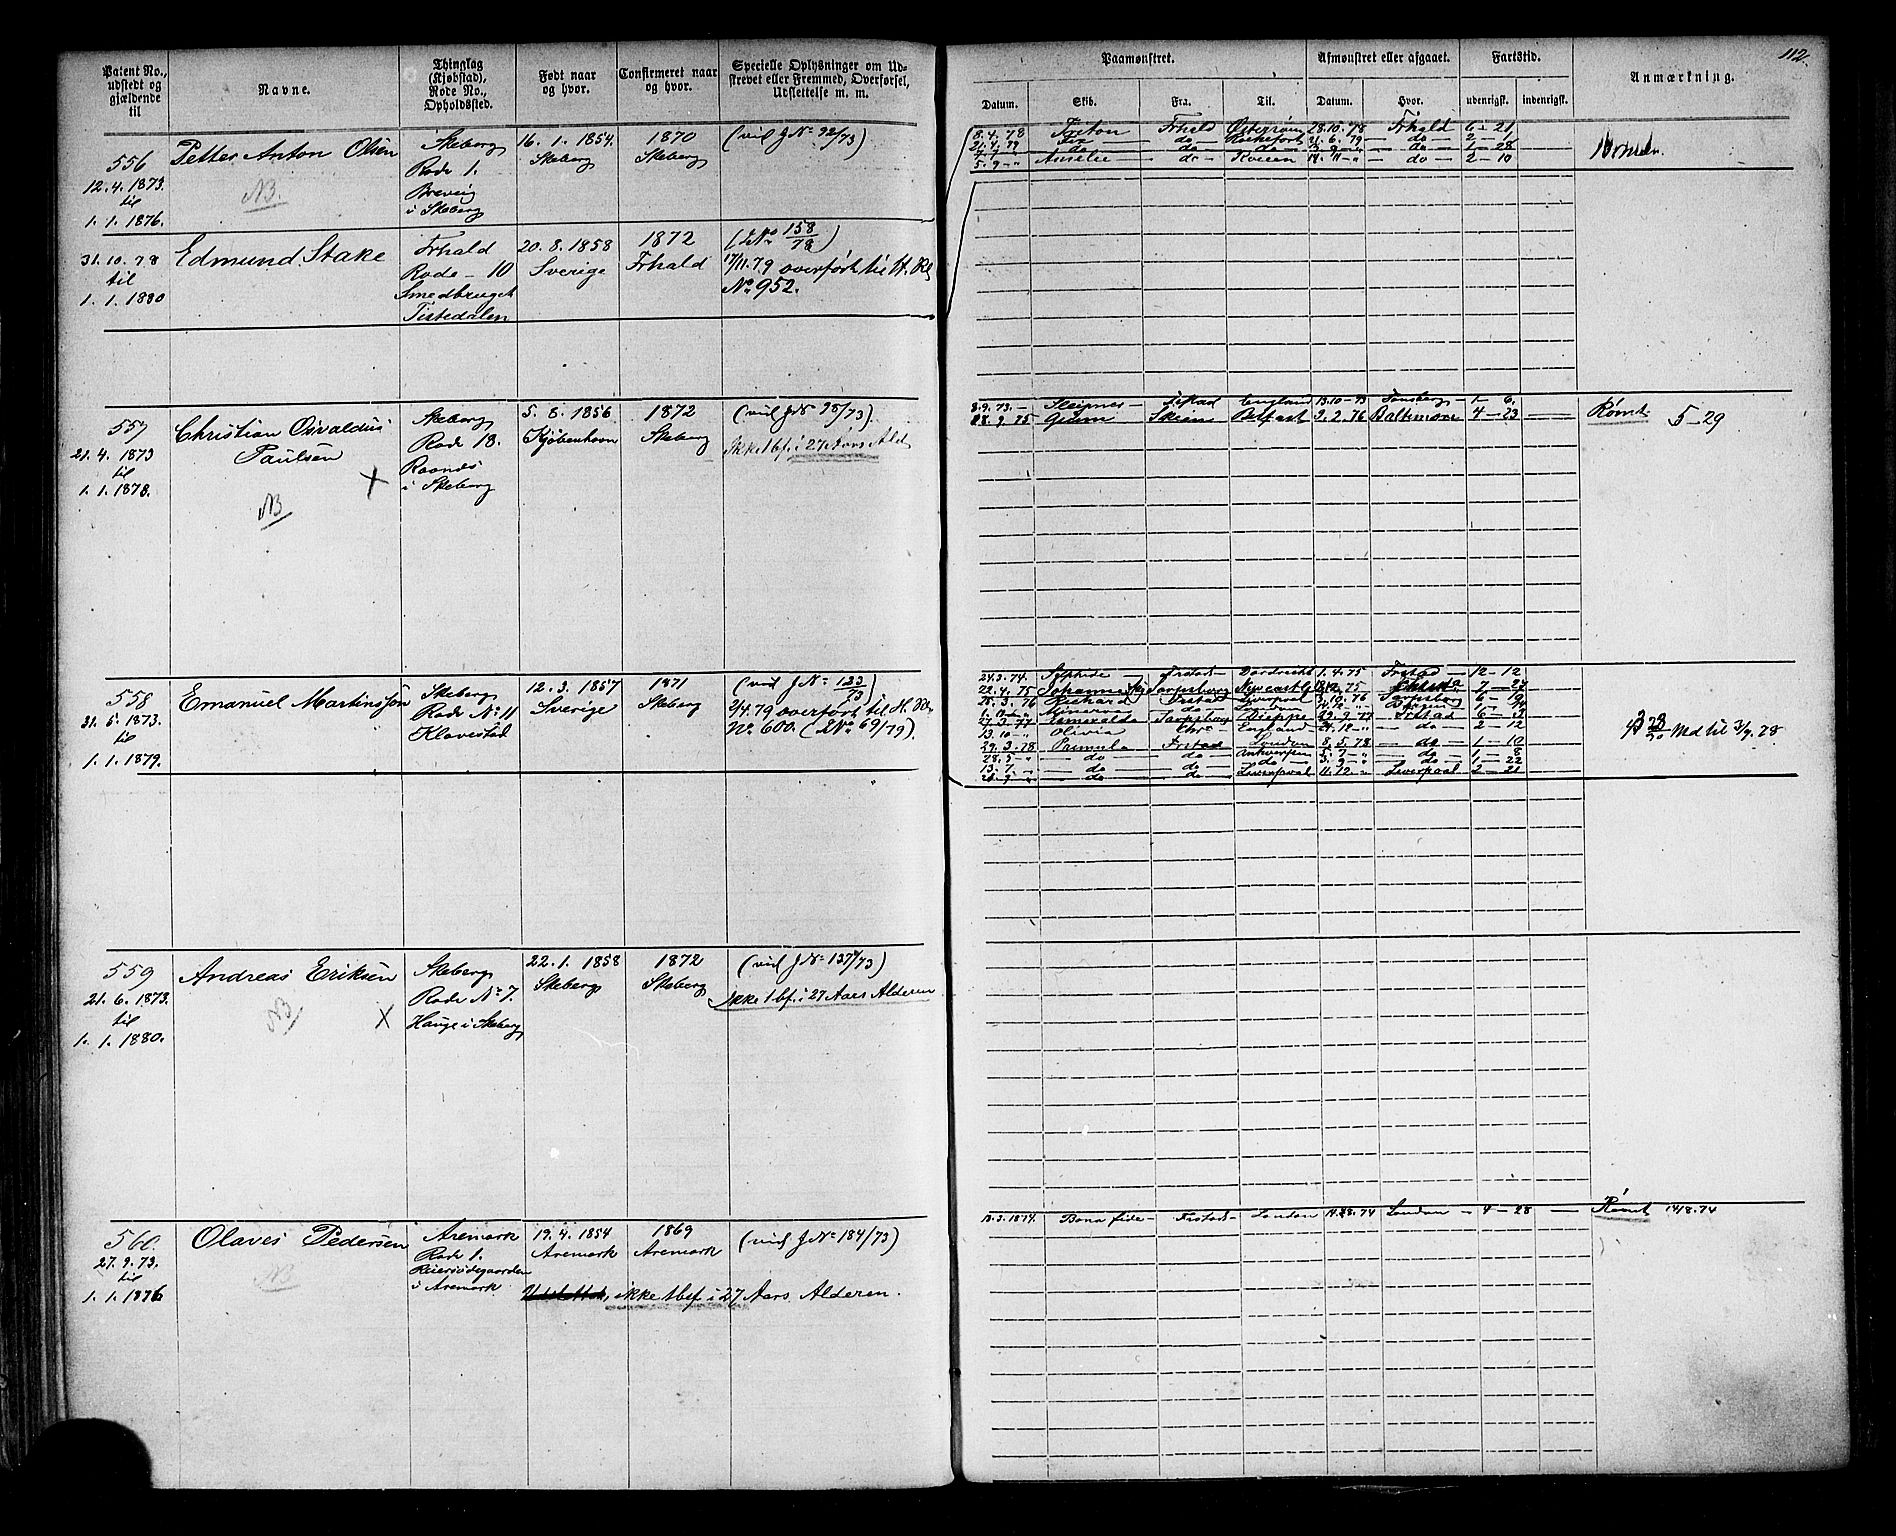 112.
Patent No., udstedt og gjældende til
Navne.
Thinglag (Kjøbstad), Rode No., Opholdssted.
Født naar og hvor.
Confirmeret naar og hvor.
Specielle Oplysninger om Udskrevet eller Fremmed, Overførsel, Udslettelse m. m.
Paamønstret.
Afmønstret eller afgaaet.
Fartstid.
Anmærkning.
Datum. Skib. Fra. Til. Datum. Hvor. udenrigsk. indenrigsk.
556 Petter Anton Olsen Skeberg 16. 1. 1854. 1870 (vid J No 92/73)
12. 4. 1873. NB. Rode 1. Skeberg Skeberg
til Brevig
1. 1. 1876. i Skeberg
Frhald 28.10.78 Frhald 6 - 21
do Rochefort do 2 - 1
do 1 - 28
5. 9 - " Amelie do 14. 11 - " do 2 - 10
31. 10. 78 Edmund Stake Frhald 20. 8. 1858 1872 (LNo 158/78)
til Rode - 10 Sverige Frhald 17/11.79 overført til H. Rl
1. 1. 1880 Smedbruget No 952.
Tistedalen
557 Christian Osvaldus Skeberg 5. 8. 1856 1872 (vid J No 98/73).
21. 4. 1873 Paulsen Rode 13. Kjøbenhavn Skeberg Ikke 1 bf. i 27de Aars Ald
til X Raanæs
1. 1. 1878. NB i Skeberg
8. 9. 73. Sleipner Fistad England 13.10 - 73 Tønsberg 1 - 6.
28. 9. 75 Skien Belfast 9. 2. 76 Baltimore 4 - 23 Rømt 5 - 29
558 Emanuel Martinsson Skeberg 12. 3. 1857 1871 (vid J No 123/73)
31. 5. 1873. Rode No 11 Sverige Skeberg 2/4.79 overført til H. Rl
til Klavestad No 600. (LNo 69/79).
1. 1. 1879.
24.3.74. Frstad Dordrecht 1. 4. 75 Frstad 12 - 12
22. 4. 75 Johannes Sarpsborg Newcastle
25. 3. 76 Richard Frstad London Sarpsborg
Minerva do
27. 3. 77 Esmeralda Sarpsborg Dieppe 29. 9. 77 Frstad
13. 10 - " Olivia Chra England do 2 - 12
29. 3. 78 Primula Frstad London 8. 5. 78 do 1 - 10
28. 5 - " do do Antwerpen 5. 7 - " do 1 - 8
13. 7 - " do do do 3. 9 - " do 1 - 22
do do Liverpool 11. 12. - " Liverpool 2 - 21
Med til 3/9. 78
559 Andreas Eriksen Skeberg 22. 1. 1858 1872 (vid J No 137/73)
21. 6. 1873. NB X Rode No 7. Skeberg Skeberg Ikke 1 bf. i 27 Aars Alderen
til Hauge i Skeberg
1. 1. 1880.
560 Olaves Pedersen Aremark 19. 4. 1854 1869 (vid J No 184/73)
27. 9. 73. NB Rode 1. Aremark Aremark
til Reierødegaarden
1. 1. 1876 i Aremark ikke 1 bef. i 27 Aars Alderen.
18.3.1874. Bona fide Frstad London 14.8.74 London 4 - 28 Rømt 14/8.74